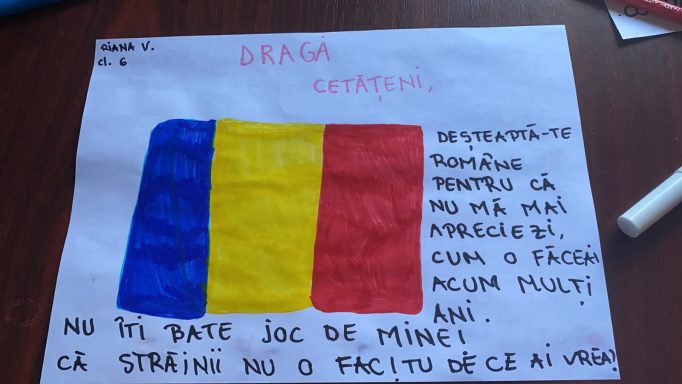 RIANA V.
cl. 6
DRAGĂ
CETĂȚENI,
DEȘTEAPTĂ-TE
ROMÂNE
PENTRU CĂ
NU MĂ MAI
APRECIEZI,
CUM O FĂCEAI
ACUM MULȚI
ANI.
NU ÎȚI BATE JOC DE MINE!
CĂ STRĂINII NU O FAC, TU DE CE AI VREA?